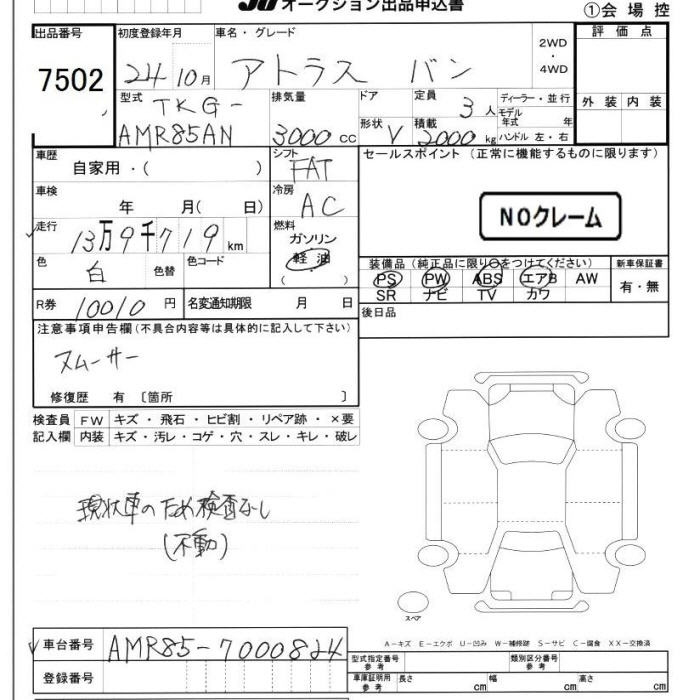 JU オークション出品申込書
①会場控
出品番号 初度登録年月 車名・グレード 2WD・4WD 評価点
7502 24 10月 アトラス バン
型式 排気量 ドア 定員 3人 ディーラー・並行 外装 内装
TKG- モデル年式 年
AMR85AN 3000cc 形状 V 積載 2000kg ハンドル 左・右
車歴 自家用・( ) シフト FAT セールスポイント (正常に機能するものに限ります)
車検 年 月( 日) 冷房 AC
NOクレーム
走行 13万9千719km 燃料 ガソリン
軽油
( . )
色 白 色替 色コード
装備品(純正品に限り○をつけてください) 新車保証書
PS PW ABS エアB AW 有・無
SR ナビ TV カワ
R券 10010円 名変通知期限 月 日 後日品
注意事項申告欄(不具合内容等は具体的に記入して下さい)
スムーサー
修復歴 有 〔箇所 〕
検査員 FW キズ・飛石・ヒビ割・リペア跡・×要
記入欄 内装 キズ・汚レ・コゲ・穴・スレ・キレ・破レ
現状車のため検査なし
(不動)
スペア
A-キズ E-エクボ U-凹み W-補修跡 S-サビ C-腐食 XX-交換済
車台番号 AMR85-7000824
型式指定番号 参考 類別区分番号 参考
登録番号 車庫証明用 参考 長さ cm 幅 cm 高さ cm